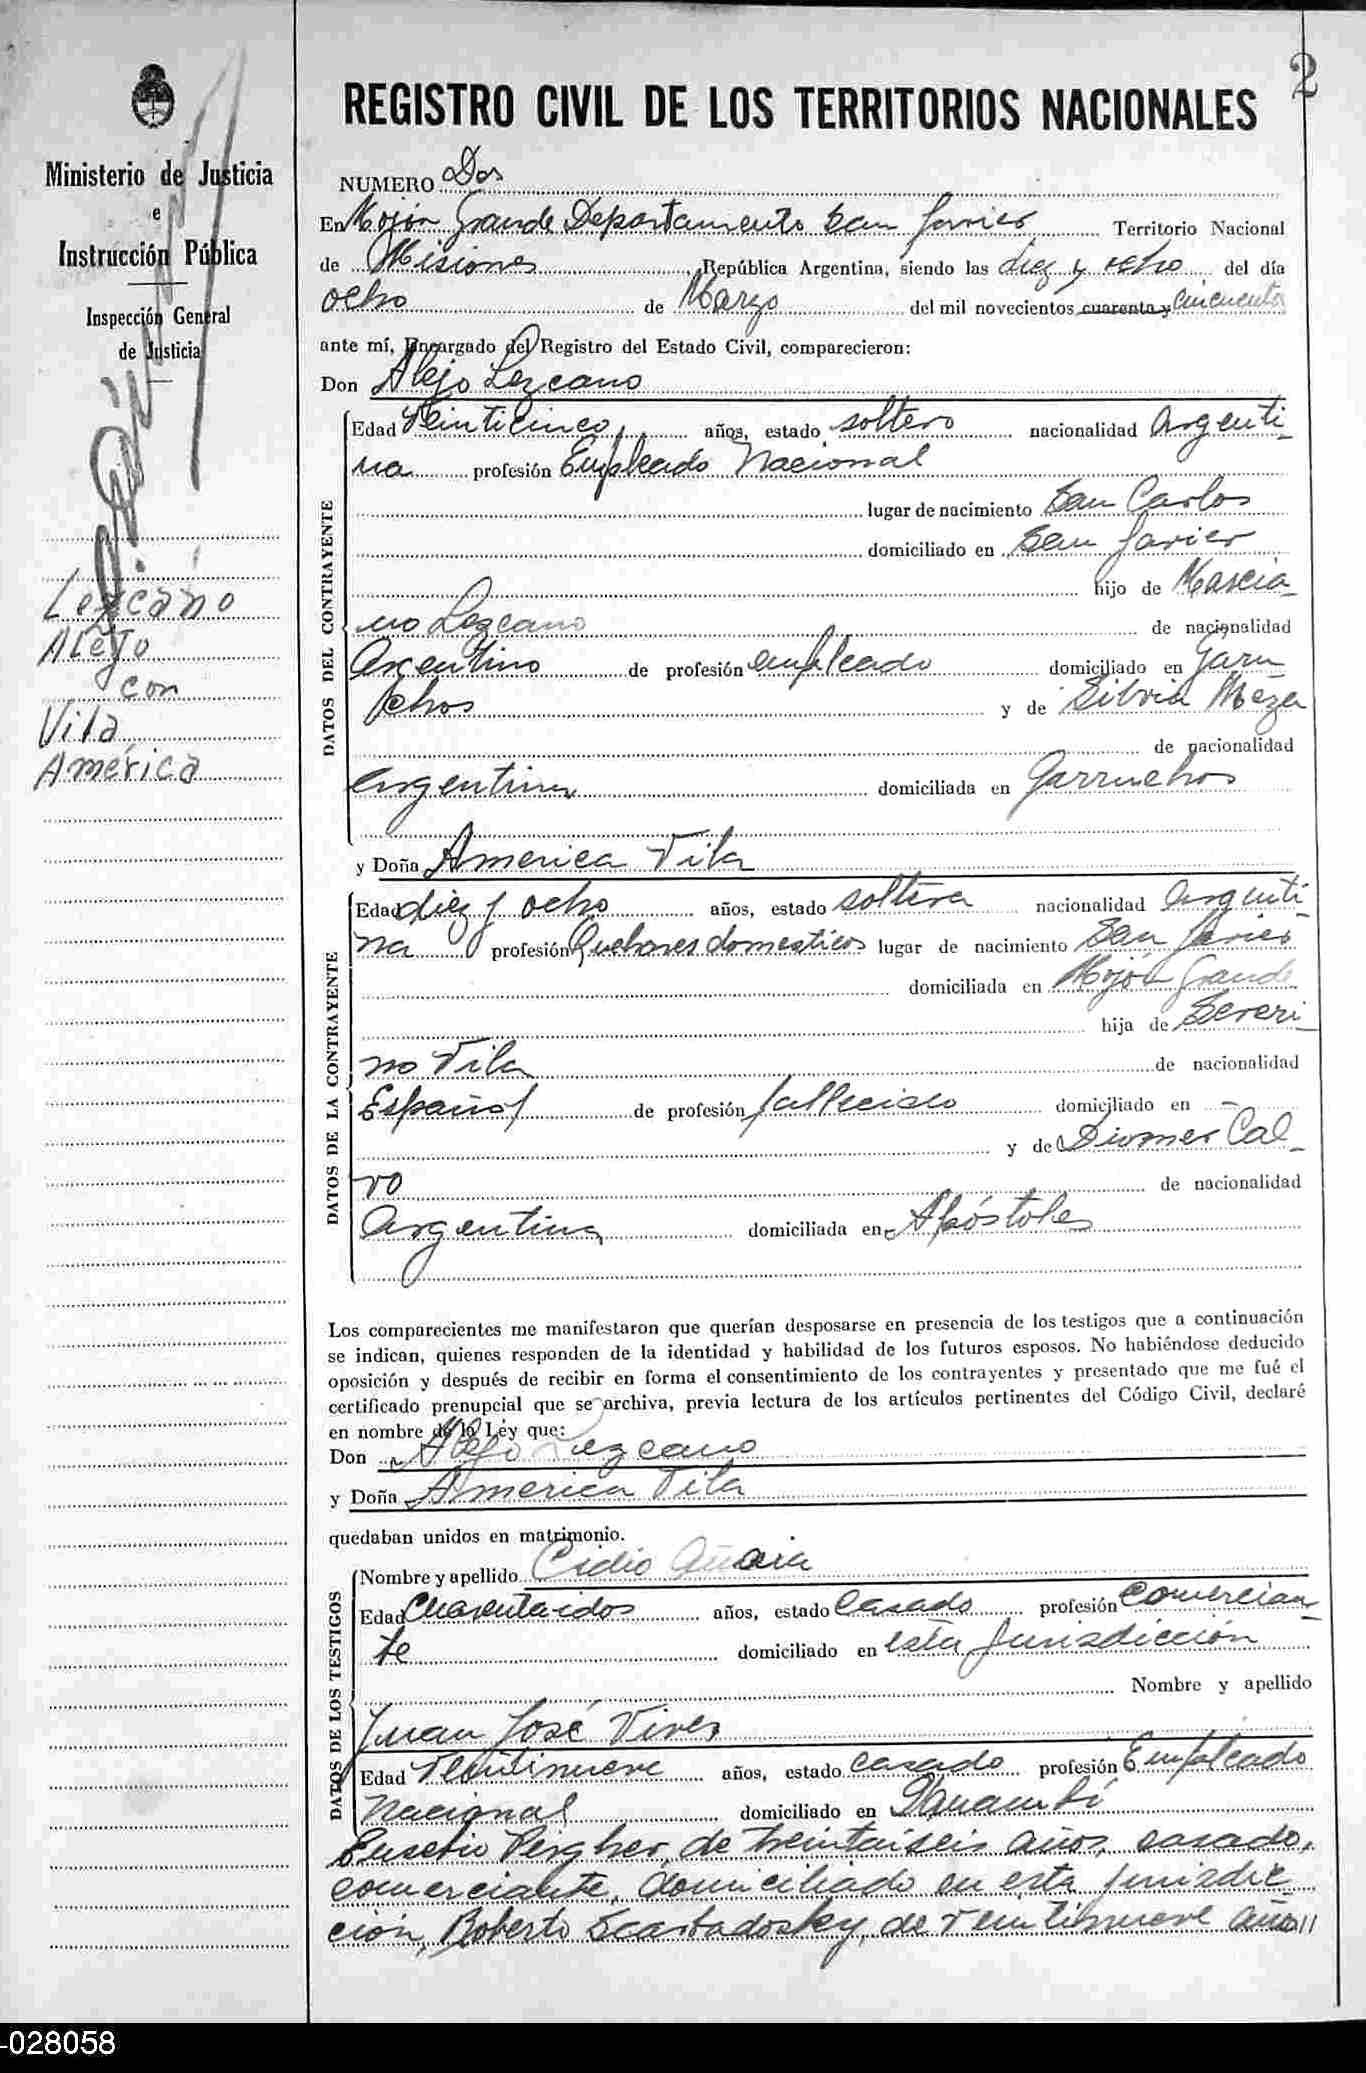 2
REGISTRO CIVIL DE LOS TERRITORIOS NACIONALES
Ministerio de Justicia
e
Instrucción Pública
Inspección General
de Justicia
Lezcano
Alejo
con
Vila
América
NUMERO Dos
En Mojón Grande Departamento San Javier Territorio Nacional
de Misiones, República Argentina, siendo las diez y ocho del día
ocho de Marzo del mil novecientos cuarenta y cincuenta
ante mí, Encargado del Registro del Estado Civil, comparecieron:
Don Alejo Lezcano
DATOS DEL CONTRAYENTE
Edad Veinticinco años, estado soltero nacionalidad Argenti-
na profesión Empleado Nacional
lugar de nacimiento San Carlos
domiciliado en San Javier
hijo de Marcia-
no Lezcano de nacionalidad
Argentino de profesión empleado domiciliado en Garru
chos y de Silvia Meza
de nacionalidad
Argentina domiciliada en Garruchos
y Doña America Vila
DATOS DE LA CONTRAYENTE
Edad diez y ocho años, estado soltera nacionalidad Argenti-
na profesión Quehaceres domesticos lugar de nacimiento San Javier
domiciliada en Mojón Grande
hija de Severi-
no Vila de nacionalidad
Español de profesión fallecido domiciliado en -
y de Diomer Cal-
vo de nacionalidad
Argentina domiciliada en Apóstoles
Los comparecientes me manifestaron que querían desposarse en presencia de los testigos que a continuación
se indican, quienes responden de la identidad y habilidad de los futuros esposos. No habiéndose deducido
oposición y después de recibir en forma el consentimiento de los contrayentes y presentado que me fué el
certificado prenupcial que se archiva, previa lectura de los artículos pertinentes del Código Civil, declaré
en nombre de la Ley que:
Don Alejo Lezcano
y Doña America Vila
quedaban unidos en matrimonio.
DATOS DE LOS TESTIGOS
Nombre y apellido Cidio
Edad Cuarentaidos años, estado Casado profesión Comercian-
te domiciliado en esta Jurisdicción
Nombre y apellido
Juan José Vives
Edad Veintinueve años, estado casado profesión Empleado
Nacional domiciliado en Panambí
Eusebio Vergher, de treintaiseis años, casado,
comerciante, domiciliado en esta jurisdic-
ción, Roberto Scartadosky, de veintinueve años //
-028058